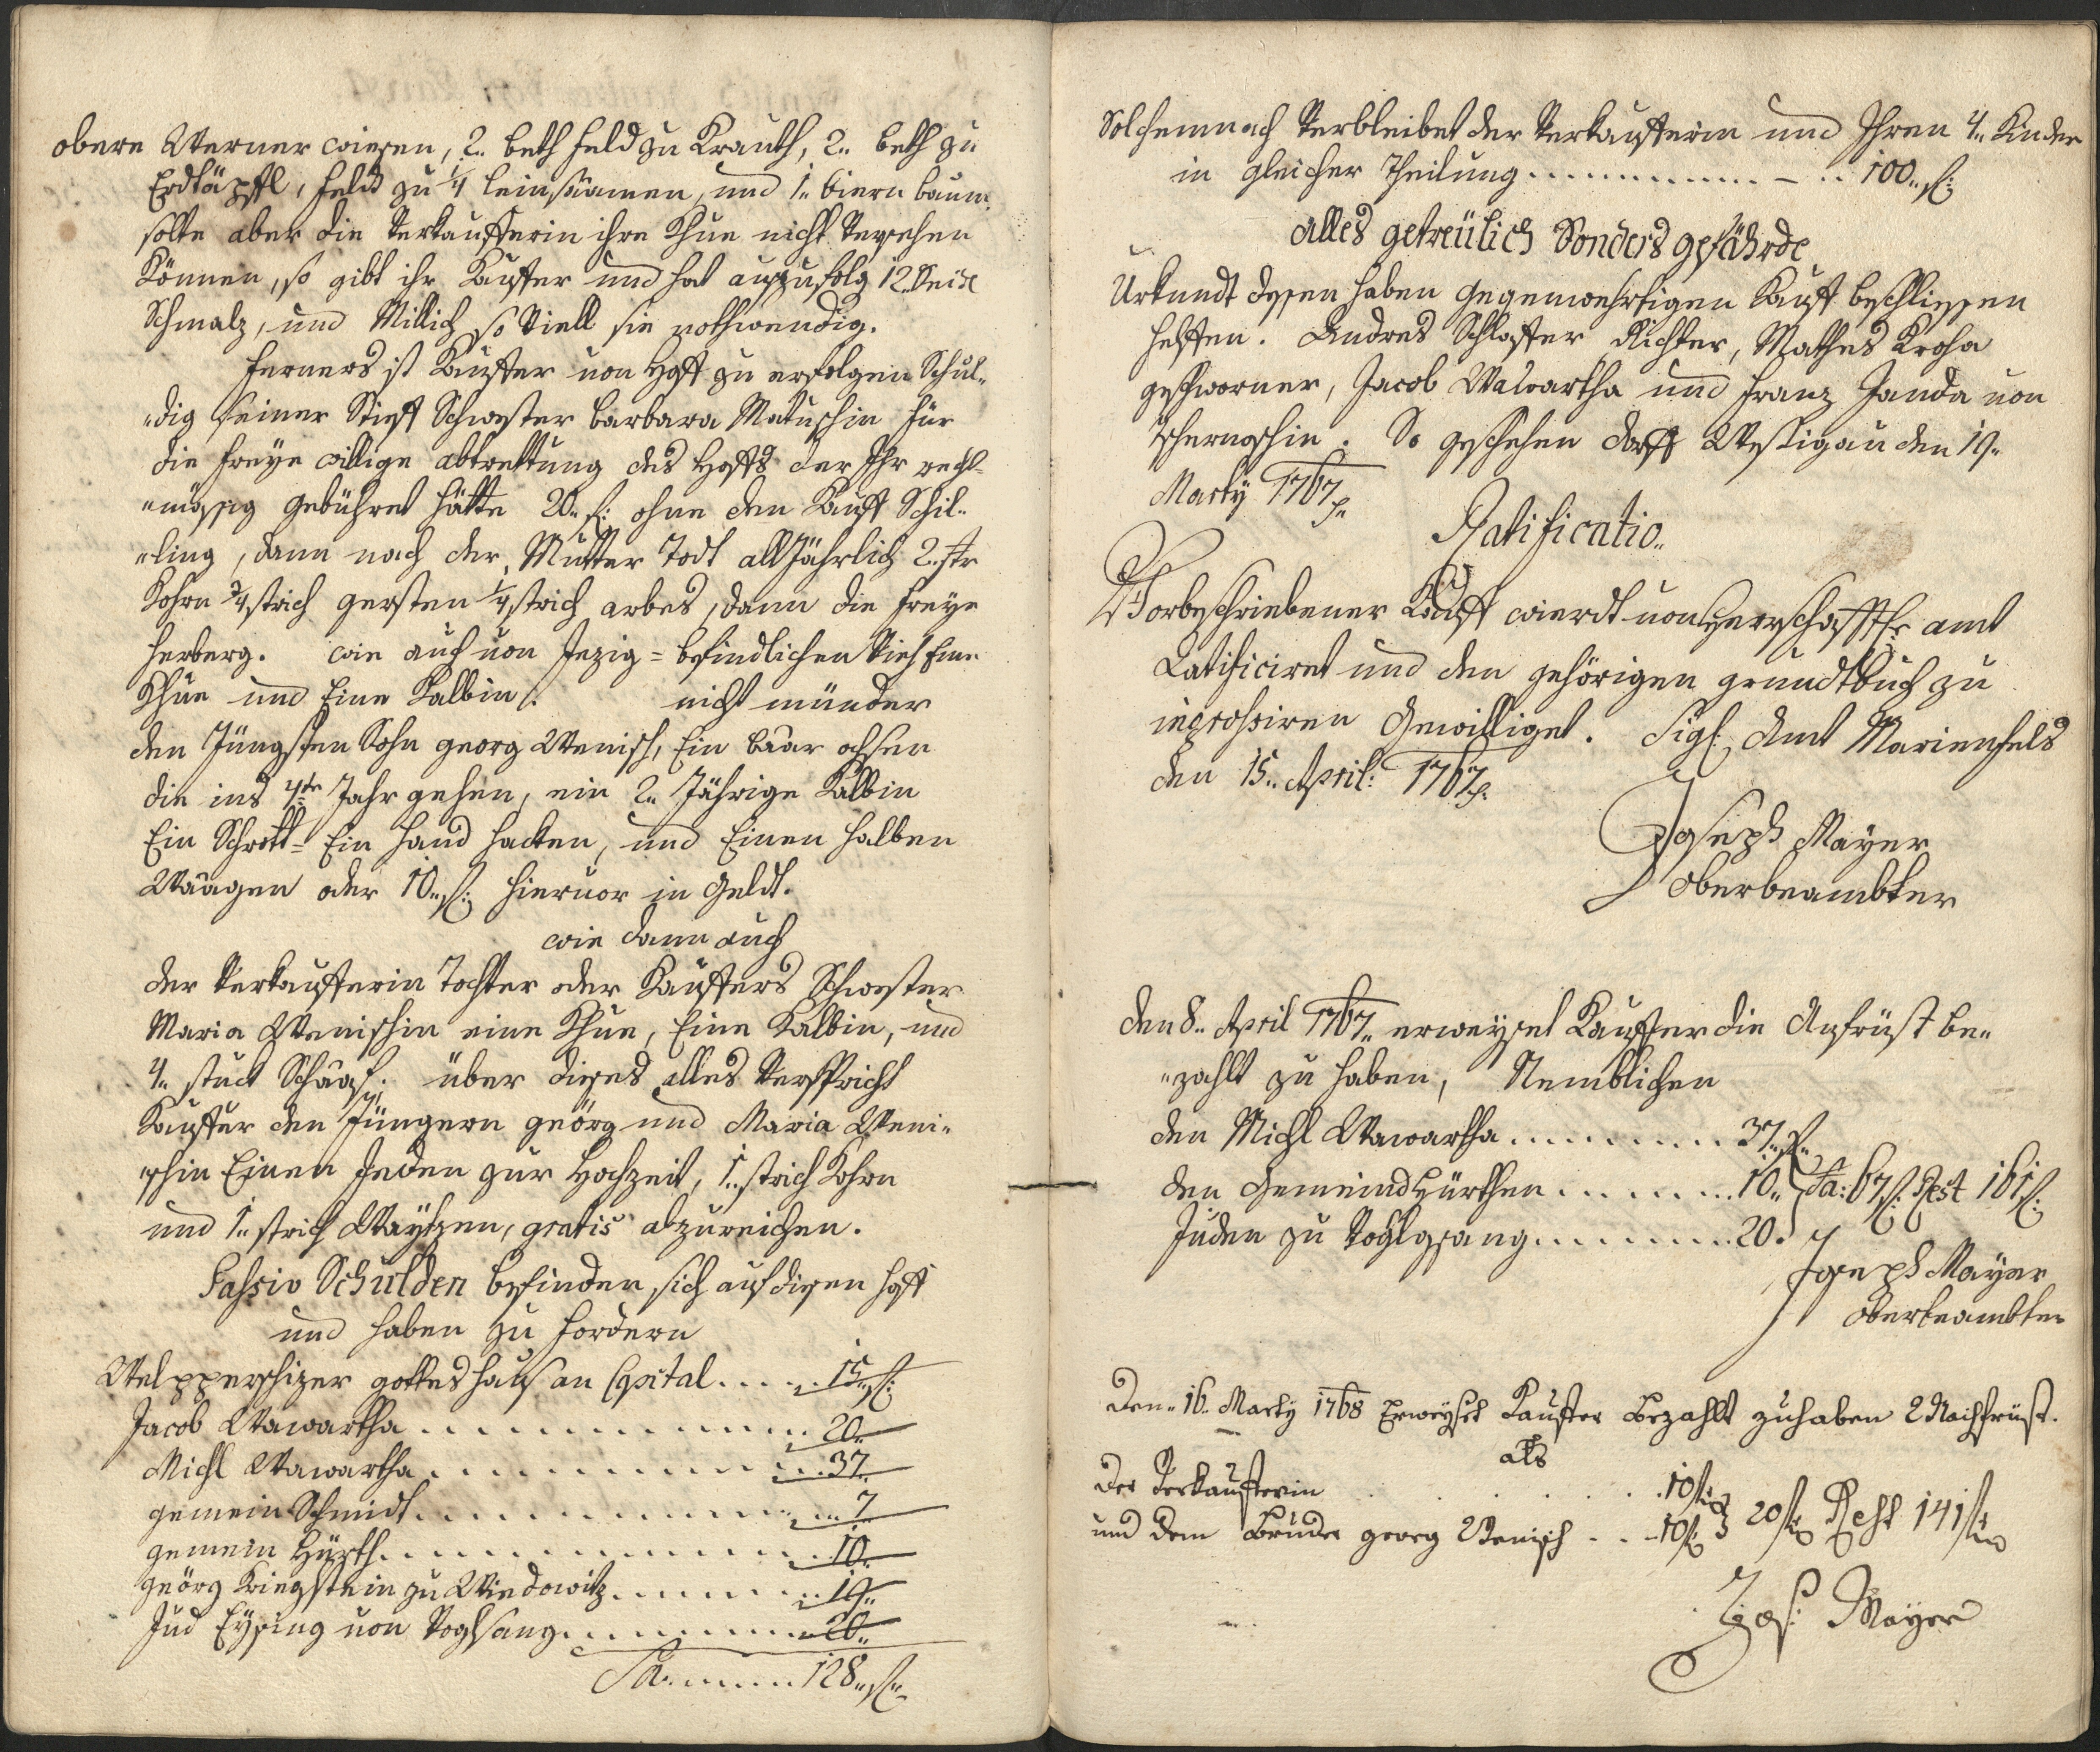 obere Werner wiesen, 2.. beth feld zu Krauth, 2.. beth zu
Erdtäpffl, feldt zu 1/4 leinsaamen, und 1.. biern baum.
solte aber die Verkaufferin ihre Khue nicht Versehen
Können, so gibt ihr Kauffer und hat auszufolg 12. Seidl
Schmalz, und Millich so Viell sie nothwendig.
ferners ist Kauffer von Hoff zu erfolgen Schul-
dig seiner Stieff Schwester Barbara Matuschin für
die freye willige abtrettung des Hoffs der Ihr recht-
mässig gebühret hätte 20.. f: ohne den Kauff Schil-
ling, dann nach der Mutter Todt all Jährlich 2. str
Kohrn 3/4 strich gersten 1/4 strich arbes, dann die freye
herberg. wie auch von Jezig= befindlichen Vieh Eine
Khue und Eine Kalbin. nicht münder
den Jüngsten Sohn georg Wenisch, Ein baar ochsen
die ins 4te Jahr gehen, ein 2.. Jährige Kalbin
Ein Schrott= Ein hand hacken, und Einen halben
Wäagen oder 10.. f: hiervor in Geldt.
wie dann auch
der Verkaufferin Tochter oder Kauffers Schwester
Maria Wenischin eine Khue, Eine Kalbin, und
4.. stuck Schaaf. über dieses alles Verspricht
Kauffer den Jüngern geörg und Maria Weni-
schin Einen Jeden zur Hochzeit, 1.. strich Kohrn
und 1.. strich Waytzen, gratis abzureichen.
Passiv Schulden befinden sich auf diesen hoff
und haben zu fordern
Welpperschizer gotteshaus an Capital..... 15.. f:
Jacob Wawartha............... 20..
Michl Wawartha............... 37..
gemein Schmidt............... 7..
gemein Hürth............... 10..
geörg Kriegstein zu Windowitz....... 19..
Jud Eysing von Voglsang.......... 20..
Sa....... 128.. f..
Solchemnach Verbleibet der Verkaufferin und Ihren 4.. Kinder
in gleicher Theilung............... 100.. f:
alles getreülich Sonders gefährde
Urkundt dessen haben gegenwehrtigen Kauff beschliessen
helffen. Andres Schloffer Richter, Mathes Kroha
geschworner, Jacob Wawartha und Franz Janda von
Tschernoschin. So geschehen dorff Wessigau den 19..
Marty 1767
Ratificatio..
Vorbeschriebener Kauff wierdt von Herrschafftl: amt
Ratificiret und den gehörigen grundtbuch zu
ingrossiren Gewilliget. Sigl: Amt Marienfels
den 15.. April: 1767
Joseph Mayer
Oberbeambter
den 8.. April 1767.. erweyset Kauffer die Anfrüst be-
zahlt zu haben, Nemblichen
den Michl Wawartha........ 37.. f..
den Gemeind Hürthen........ 10.. Sa: 67 f: Rest 161 f:
Juden zu Voglgsang........ 20.
Joseph Mayer
oberbeambter
Den.. 16. Marty 1768 Erweyset Kauffer Bezahlt zuhaben 2 Nachfrüst.
als
Der Verkaufferin . . . . . 10 f:
und dem Bruder georg Wenisch . . . 10 f: 20 f: Rest 141 f:
Jos: Mayer